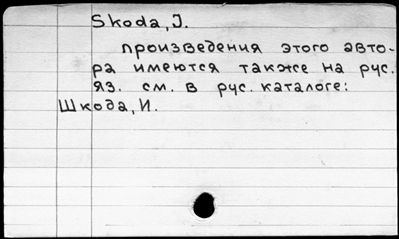 Skoda, J.
произведения этого авто-
ра имеются также на рус.
яз. см. в рус. каталоге:
Шкода, И.